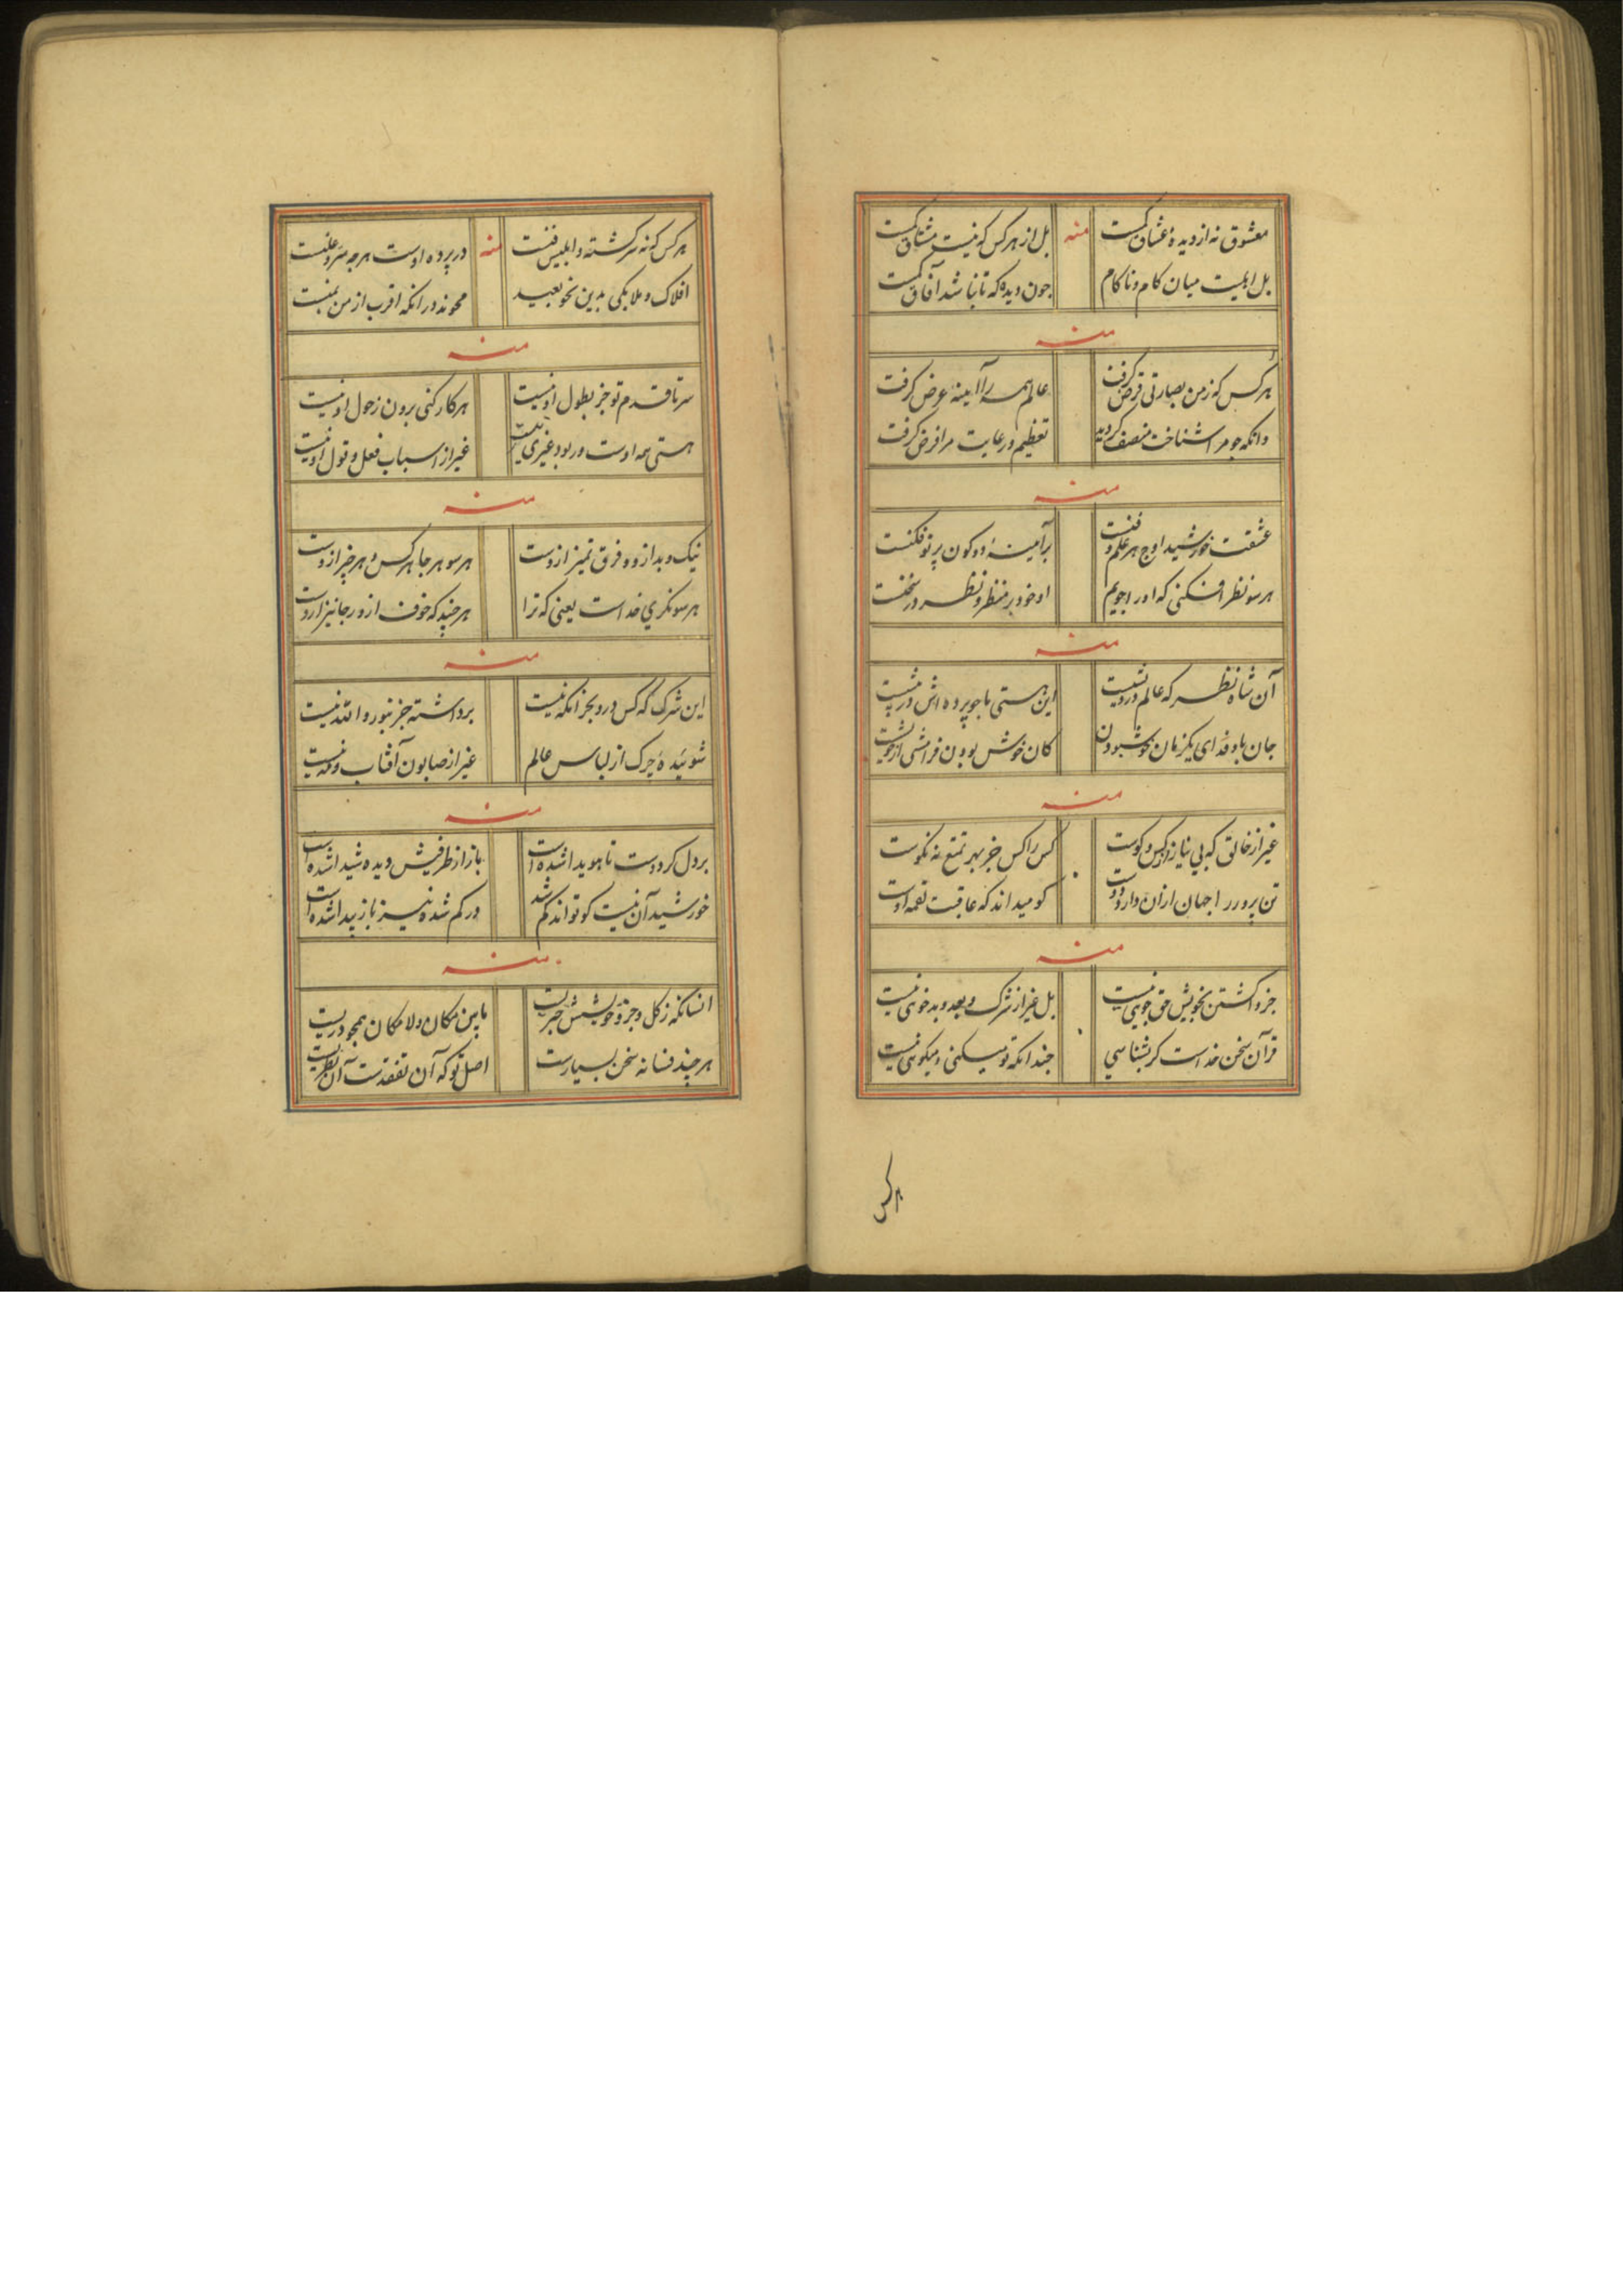 معشوق نه از دیدهٔ عشاق کمست منه بل از هر کس که نیست مشتاق کمست
بل ابلیست میان کام و ناکام جون دیده که تا نباشد آفاق کمست
منه
هر کس که ز من بصارتی قرض گرفت عالم همه را آیینه عرض گرفت
وانکه جو مرا شناخت منصف گردید تعظیم و رعایت مرا فرض گرفت
منه
عشقت خورشید اوج هر علم و فنست بر آیینهٔ دو کون پرتو فکنست
هر سو نظر افکنی که او را جویم او خود بر منظر و نظر در سخنست
منه
آن شاه نظر که عالم درویشیست این هستی ما جو پرده اش در پیشیست
جان باد فدای یکزمان خوشبودن کان خوش بودن فرامشی از خویشیست
منه
غیر از خالق که بی نیاز از کس و کوست کس را کس جز بهر تمتع نه نکوست
تن پرور را جهان از آن دارد دوست کو میداند که عاقبت لقمه اوست
منه
جز واگشتن بخویش حق جویی نیست بل غیر از شرک و بعد و بدخویی نیست
قرآن سخن خداست گر بشناسی جندانکه تو میکنی و میگویی نیست
هر کس
هر کس که نه سرگشته و ابلیس فنست منه در پرده اوست هرجه سر و علنست
افلاک و ملایکی بدین نحو بعید محوند در انکه اقرب از من بمنست
منه
سر تا قدم تو جز بطول او نیست هر کار کنی برون ز حول او نیست
هستی همه اوست ور بود غیری نیست غیر از اسباب فعل و قول او نیست
منه
نیک و بد ازو و فرق و تمیز ازوست هر سو هر جا هر کس و هر چیز ازوست
هر سو نگری خداست یعنی که ترا هر چند که خوف ازو رجا نیز ازوست
منه
این شرک که کس درو بجز انکه نیست برداشته جز بنور والله نیست
شوئیدهٔ چرک از لباس عالم غیر از صابون آفتاب و مه نیست
منه
بر دل کردوست تا هویدا شده است باز از طرفیش دیده شیدا شده است
خورشید آن نیست کو تواند گم شد ور گم شده نیز باز پیدا شده است
منه
انسانکه ز کل و جزو خویشش خبریست مابین مکان و لامکان همجو دریست
هر چند فسانه سخن بسیارست اصل تو که آن تفقدت آن نظریست